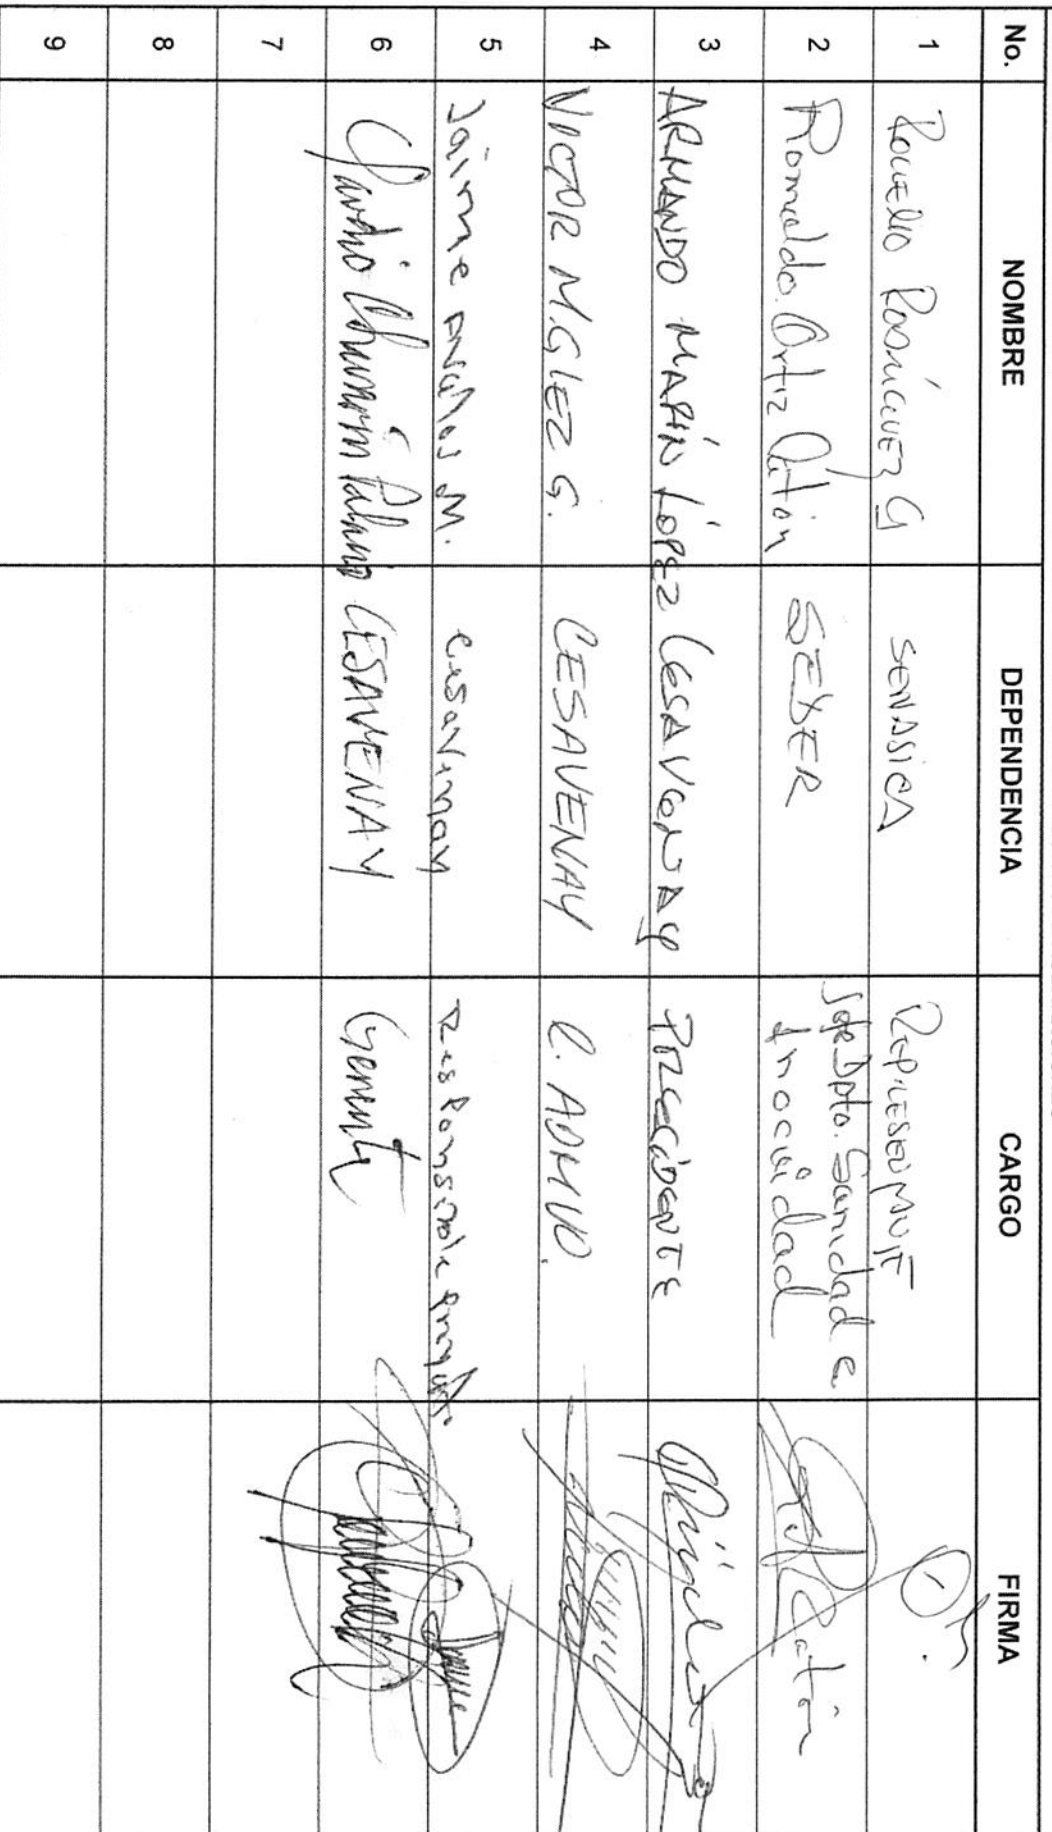 No. NOMBRE DEPENDENCIA CARGO FIRMA
1 Rogelio Rodríguez G SENASICA REPRESENTANTE
2 Romualdo Ortiz Catón SEDER Jefe Dpto. Sanidad e
Inocuidad
3 ARMANDO MARÍN LÓPEZ CESAVENAY PRECIDENTE
4 VICTOR M. GLEZ G. CESAVENAY C. ADMVO.
5 Jaime M. cesavenay Responsable
6 CESAVENAY Gerente
7
8
9